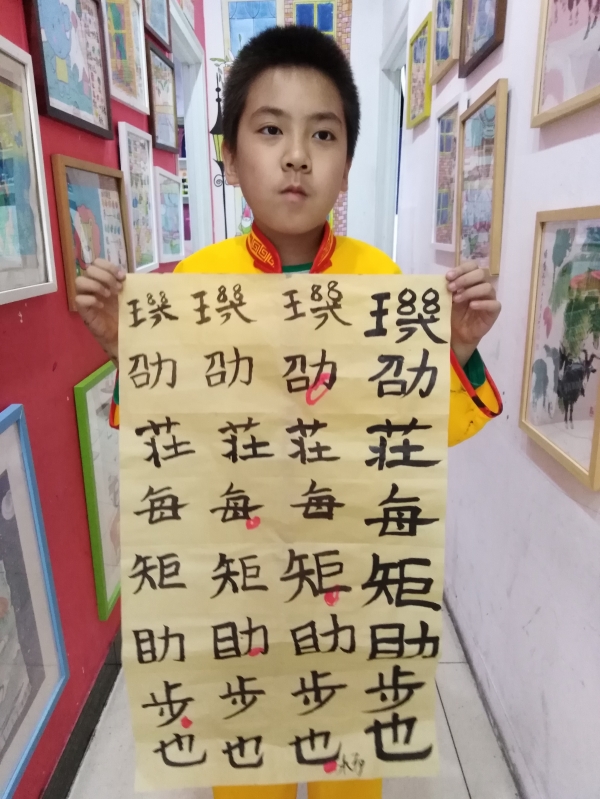 璣 璣 璣 璣
劭 劭 劭 劭
荘 荘 荘 荘
每 每 每 每
矩 矩 矩 矩
助 助 助 助
步 步 步 步
也 也 也 也